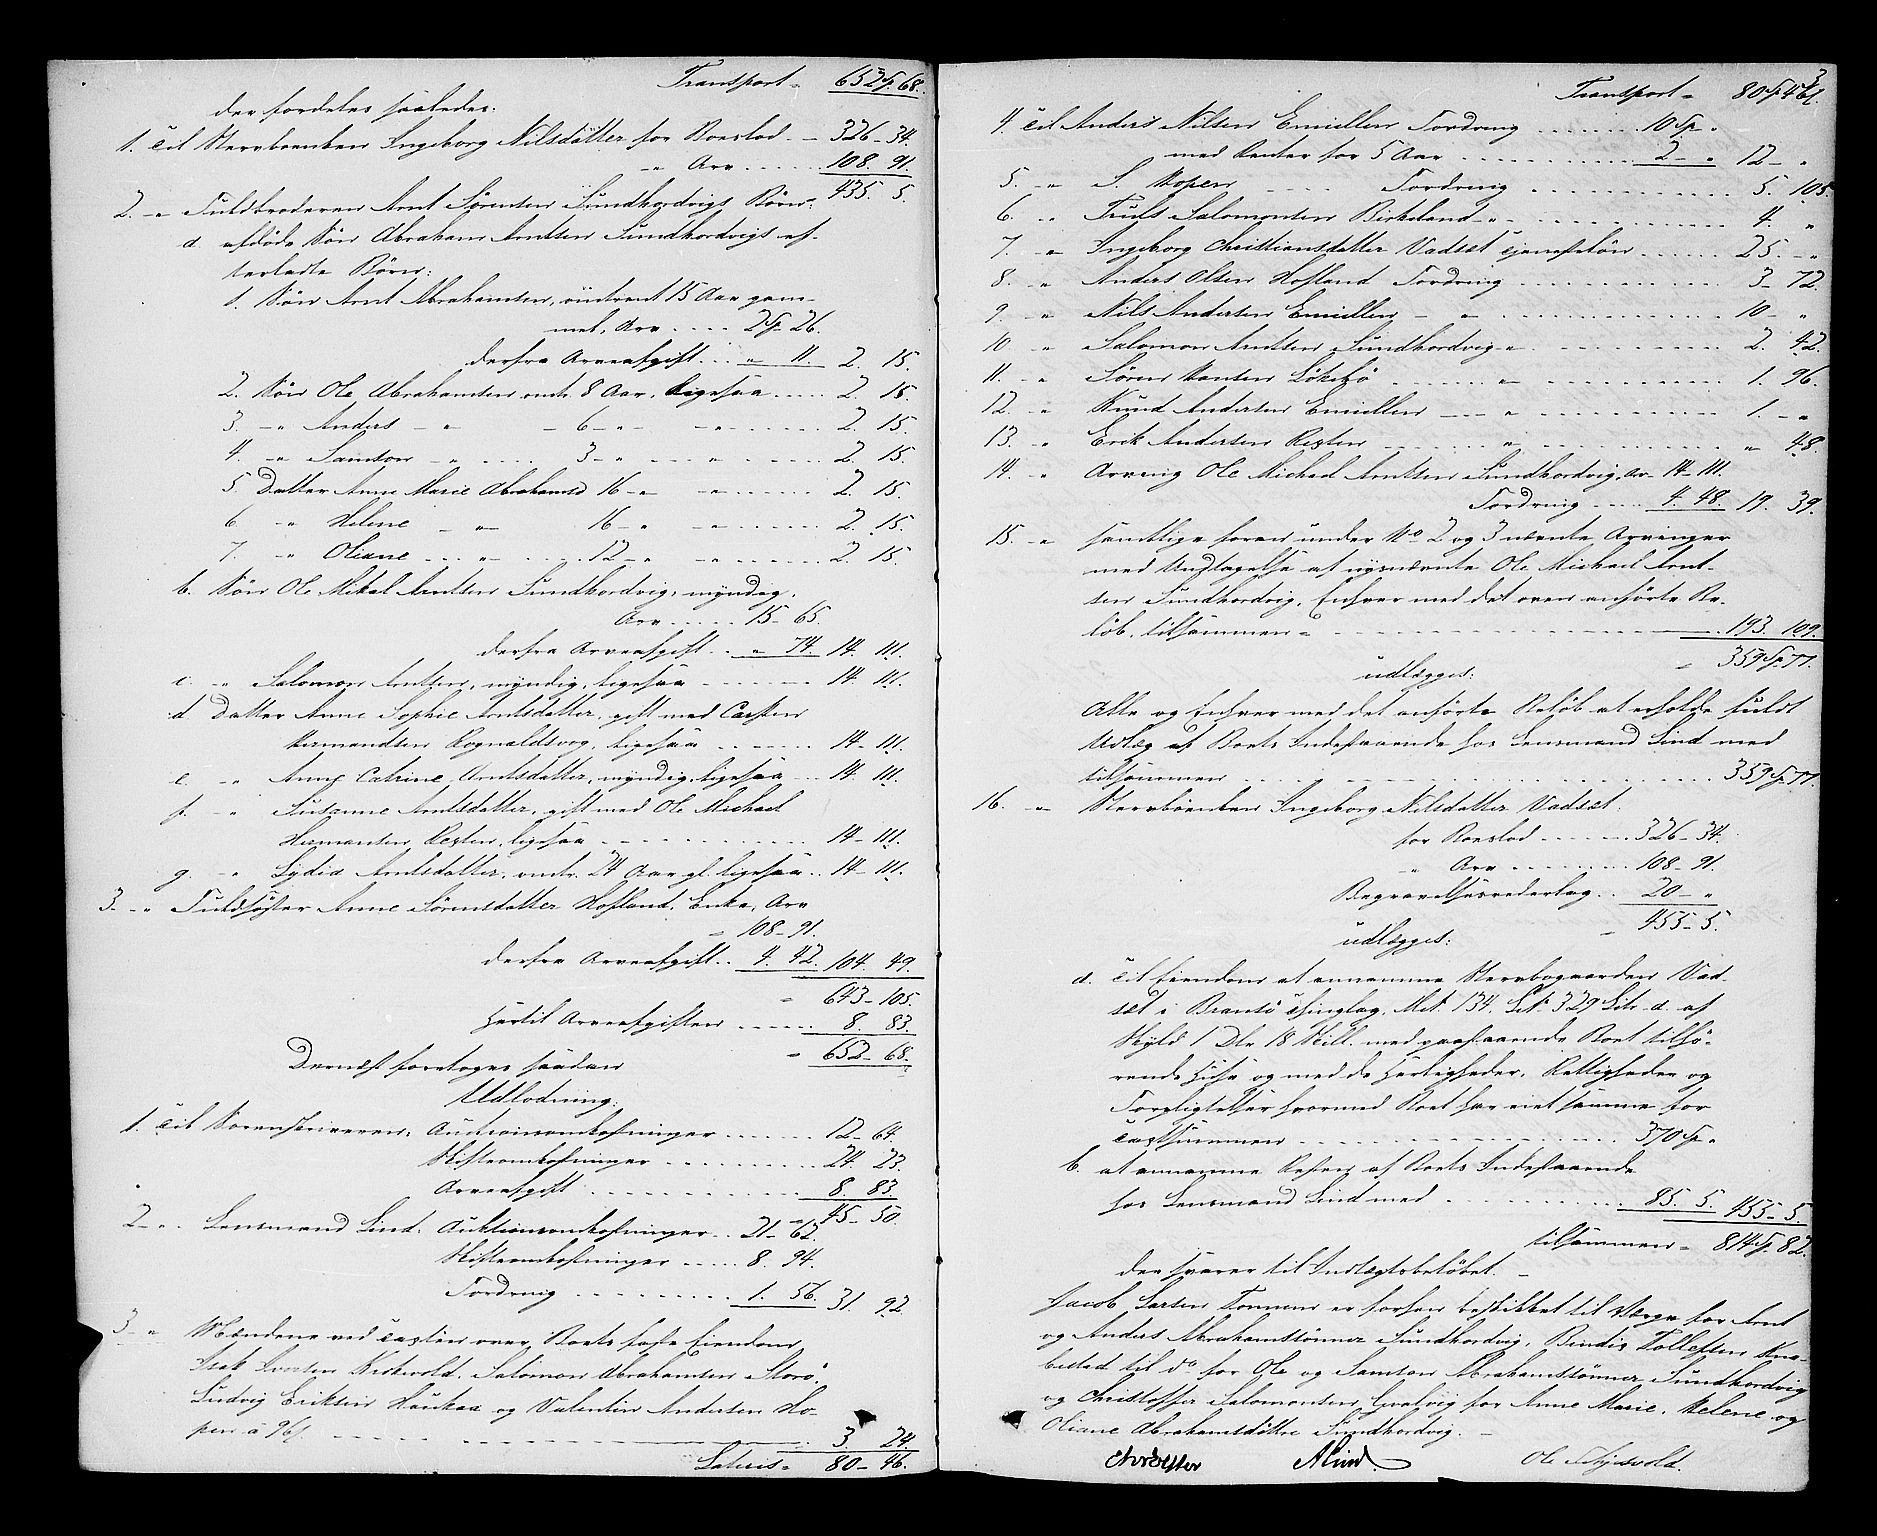 Transport " 652 Sp. 68.
der fordeles saaledes:
1. Til Stervboenken Ingeborg Nilsdatter for Boeslod - 326-34.
" Arv ..... 108. 91.
435. 5.
2. " Fuldbroderen Arnt Sörensen Sundhordvigs Börn:
a. afdöde Sön Abraham Arntsen Sundhordvigs ef-
terladte Börn:
1. Sön Arnt Abrahamsen, omtrent 15 Aar gam-
mel, Arv .... 2 Sp 26.
derfra Arveafgift .. " 11. 2. 15.
2. Sön Ole Abrahamsen omtr. 8 Aar, ligesaa ..... 2. 15.
3. -" Anders -" - 6 -" -" ...... 2. 15.
4. -" Samson -" .... 3 -" " ...... 2. 15.
5. Datter Anne Marie Abrahamsd 16 -" -" ...... 2. 15.
6. -" Helene -" 16 -" -" ...... 2. 15.
7. -" Oliane ... -" .... 12 -" -" ...... 2. 15.
b. Sön Ole Mikal Arntsen Sundhordvig, myndig,
Arv ..... 15-65.
derfra Arveafgift .. " 74. 14. 111.
c. " Salomon Arntsen, myndig, ligesaa ...... 14. 111.
d Datter Anne Sophie Arntsdatter, gift med Carsten
Hermandsen Rognaldsvog, ligesaa ...... 14-111.
e. " Anne Catrine Arntsdatter, myndig, ligesaa ... 14. 111.
f. -" Susanne Arntsdatter, gift med Ole Michael
Hermansen Resten, ligesaa ...... 14-111.
g. -" Lydia Arntsdatter, omtr. 24 Aar gl. ligesaa .. 14-111.
3. -" Fuldsöster Anne Sörensdatter Hofland, Enke, Arv
" 108-91.
derfra Arveafgift .. 4. 42. 104. 49.
" 643-105.
Hertil Arveafgiften ..... 8. 83.
" 652-68.
Dernæst foretoges saadan
Udlodning:
1. Til Sorenskriveren: Auctionsomkostninger ...... 12-64.
Skifteomkostninger ...... 24. 23.
Arveafgift ...... 8. 83.
45-50.
2. -" Lensmand Lind: Auktionsomkostninger .. 21-62.
Skifteomkostninger ..... 8. 94.
Fordring ...... 1. 56. 31. 92.
3. -" Mændene ved Taxten over Boets faste Eiendom
Isak Iversen, Salomon Abrahamsen Storö,
Ludvig Eriksen Haukaa og Valentin Andersen Ho-
pen à 96 s. ...... 3. 24.
Lateris " 80-46.
3
Transport " 80 Sp 46 s.
4. Til Anders Nilsen Emiellen Fordring ...... 10 Sp "
med Renter for 5 Aar ...... 2 - " 12 - "
5. -" S. Hopen ... Fordring ...... 5. 105.
6. -" Truls Salomonsen Birkeland -" ...... 4. "
7. -" Ingeborg Christiansdatter Vadset Tjenestelön ...... 25. - "
8. -" Anders Olsen Hofland Fordring ...... 3-72.
9. -" Nils Andersen Emiellen - " ...... 10 - "
10 -" Salomon Arntsen Sundhordvig " ...... 2. 42.
11. -" Sören Hansen ...... " ...... 1. 96.
12. -" Knud Andersen Emiellen --- " ...... 1. - "
13. -" Erik Andersen Resten ...... " ...... " 48.
14. -" Arving Ole Michael Arntsen Sundhordvig, Arv 14-111.
Fordring .... 4. 48. 19. 39.
15. -" samtlige foran under No 2 og 3 nævnte Arvinger
med Undtagelse af nysnævnte Ole Michael Arnt-
sen Sundhordvig, Enhver med det oven anförte Be-
löb, tilsammen " ...... 193. 109.
" 359 Sp. 77.
udlægges:
Alle og Enhver med det anförte Belöb at erholde fuldt
Udlæg af Boets Indestaaende hos Lensmand Lind med
tilsammen ...... 359 Sp 77.
16. -" Stervboenken Ingeborg Nilsdatter Vadset:
for Boeslod ...... 326-34.
" Arv ...... 108-91.
Begravelsesvederlag .. 20 - "
" 455-5.
udlægges:
a. Til Eiendom at annamme Stervbogaarden Vad-
set i Bransö Thinglag, Mat. 134. Löb. 329 Litr. a. af
Skyld 1 Dlr 18 Skill. med paastaaende Boet tilhö-
rende Huse og med de Herligheder, Rettigheder og
Forpligtelser hvormed Boet har eiet samme for
Taxtsummen ...... 370 Sp "
b. at annamme Resten af Boets Indestaaende
hos Lensmand Lind med ...... 85. 5. 455-5.
tilsammen " 814 Sp. 82.
der svarer til Indtægtsbelöbet. -
Jacob Larsen Tonnen er forhen beskikket til Værge for Arnt
og Anders Abrahamsönner Sundhordvig, Bendix Tollefsen Kna-
bestad til do for Ole og Samson Abrahamsönner Sundhordvig
og Christoffer Salomonsen Gvalvig for Anne Marie, Helene og
Oliane Abrahamsdöttre Sundhordvig. -
ALind.
Ole